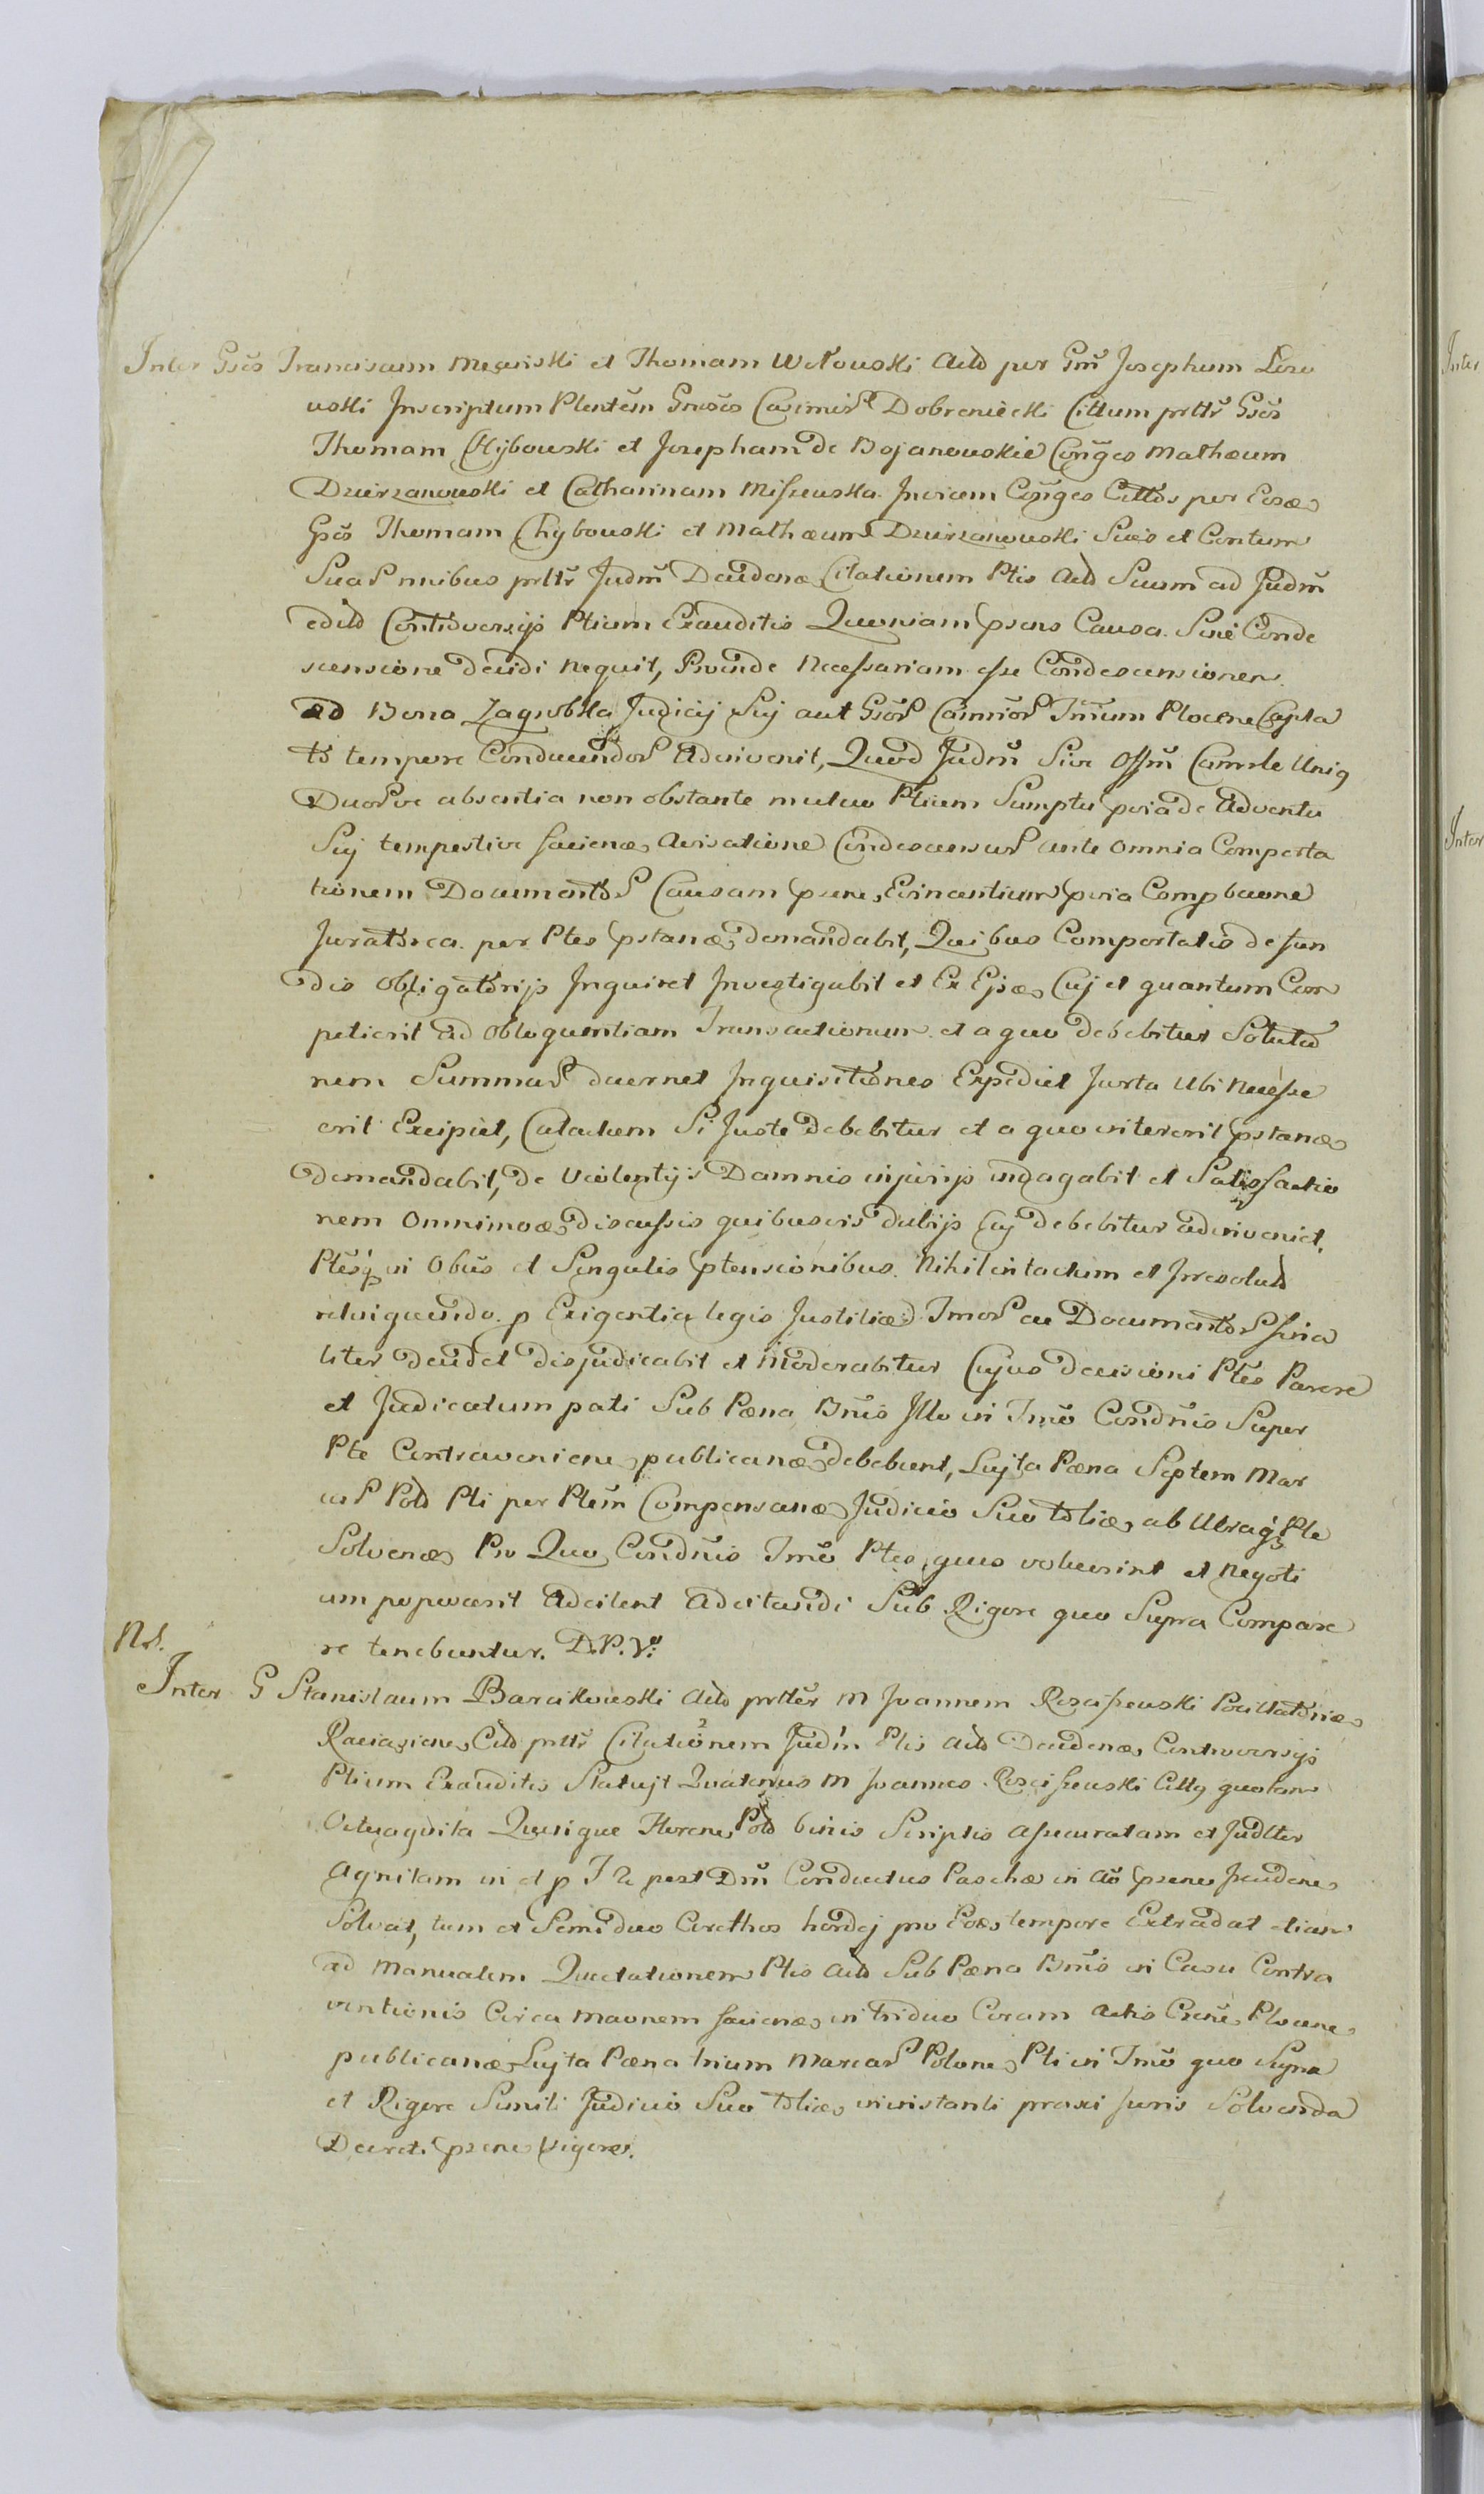 Inter Gsōs Franciscum Męcinski et Thomam Witowski Actō per Gm̄ Josephum Lisu
uski Inscriptum Plentēm Gnosōs Casimir Dobreniecki Cittum prttr̄ Gsōs
Thomam Chybowski et Josepham de Bojanowskie Conḡes Mathæum
Dzierzanowski et Catharinam Miszewska Invicem Conḡes Cittōs per Eosæ
Gsōs Thomam Chybowski et Mathæum Dzierzanowski Suis et Contum
Suar nnibus prttr̄ Judm̄ Decidenæ Citationem Ptis Actō Suum ad Judm̄
editō Controversijs Ptium Exauditis Quoniam psens Causa Sine Conde
scensione decidi nequit, Proinde Necessariam esse Condescensionem
ad Bona Zagrobka Judicij Sij aut Gsōr Camrōr Trr̄ium Plocene Capta
to tempore Conducendor Adinvenit, Quod Judm̄ Sive Offm̄ Camrle Uniq
Duorve absentia non obstante mutuo Ptium Sumptu pvia de Adventu
Sij tempestive facienæ Avisatione Condescensur ante omnia Comporta
tionem Documentor Causam psene Evincentium pvia Compbaone
Juratorea per Ptes pstanæ demandabit, Quibus Comportatis de fun
dis obligatorijs Inquiret Investigabit et Ex Ejsæ Cuj et quantum Com
petierit ad obloquentiam Transactionum et a quo debebitur Solutio
nem Summar decernet Inquisitiones Expediet Jurta Ubi Necesse
erit Excipiet, Calculum Si Juste debebitur et a quo intererit pstanæ
demandabit, de Violentijs Damnis injurijs indagabit et Satisfactio
nem omnimoæ discussis quibusvis dubijs Cuj debebitur adinveniet,
Ptesq in Obus et Singulis ptensionibus Nihil intactum et Irresolutō
relinquendo p Exigentia legis Justitiæ Tmor ac Documentor fina
liter decidet disjudicabit et moderabitur Cujus decisioni Ptes Parere
et Judicatum pati Sub Pæna Bn̄is Illo in Tmō Condn̄is Super
Pte Contraveniene publicanæ debebunt, Lujta Pæna Septem Mar
car Polō Pti per Ptem Compensanæ Judicio Suo tōliæ ab Utraq Pte
Solvenæ Pro Quo Condn̄is Tmō Ptes quos voluerint et Negoti
um poposcerit Adcitent Adcitandi Sub Rigore quo Supra Compare
re tenebuntur. D. P. V.
Ns.
Inter G Stanislaum Barcikowski Actō prttr̄ M Joannem Rosciszewski Pocillatoriæ
Raciaziene Citō prttr̄ Citationem Judm̄ Ptis Actō Decidenæ Controversijs
Ptium Exauditis Statujt Quatenus M Joannes Rosciszewski Cittq quotam
Octuaginta Quinque Florene Polō binis Scriptis assecuratam et Judlter
Agnitam in et p F 2 post Dm̄ Conductus Paschæ in aō psene Incidene
Solvat, tum et Semiduos Corethos hordej pro Eoæ tempore Extradat etiam
ad manualem Quietationem Ptis Actō Sub Pæna Bn̄is in Casu Contra
ventionis Circa maonem facienæ in triduo Coram Actis Csrn̄e Plocene
publicanæ Lujta Pæna trium Marcar Polone Pti in Tmō quo Supra
et Rigore Simili Judicio Suo tōliæ in instanti praxi juris Solvenda
Decreti psene Vigore.
Inter
Inter